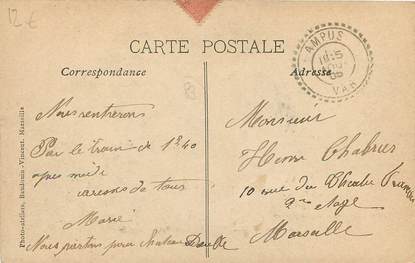 12 €
CARTE POSTALE
Correspondance
Adresse
AMPUS
VAR
Photo-ateliers, Baudouin-Vincent, Marseille
Nous rentrerons
Par le train de 1h40
apres midi
de tous
Marie
Nous partons pour
Monsieur
Chabrier
10 rue du Theatre
étage
Marseille